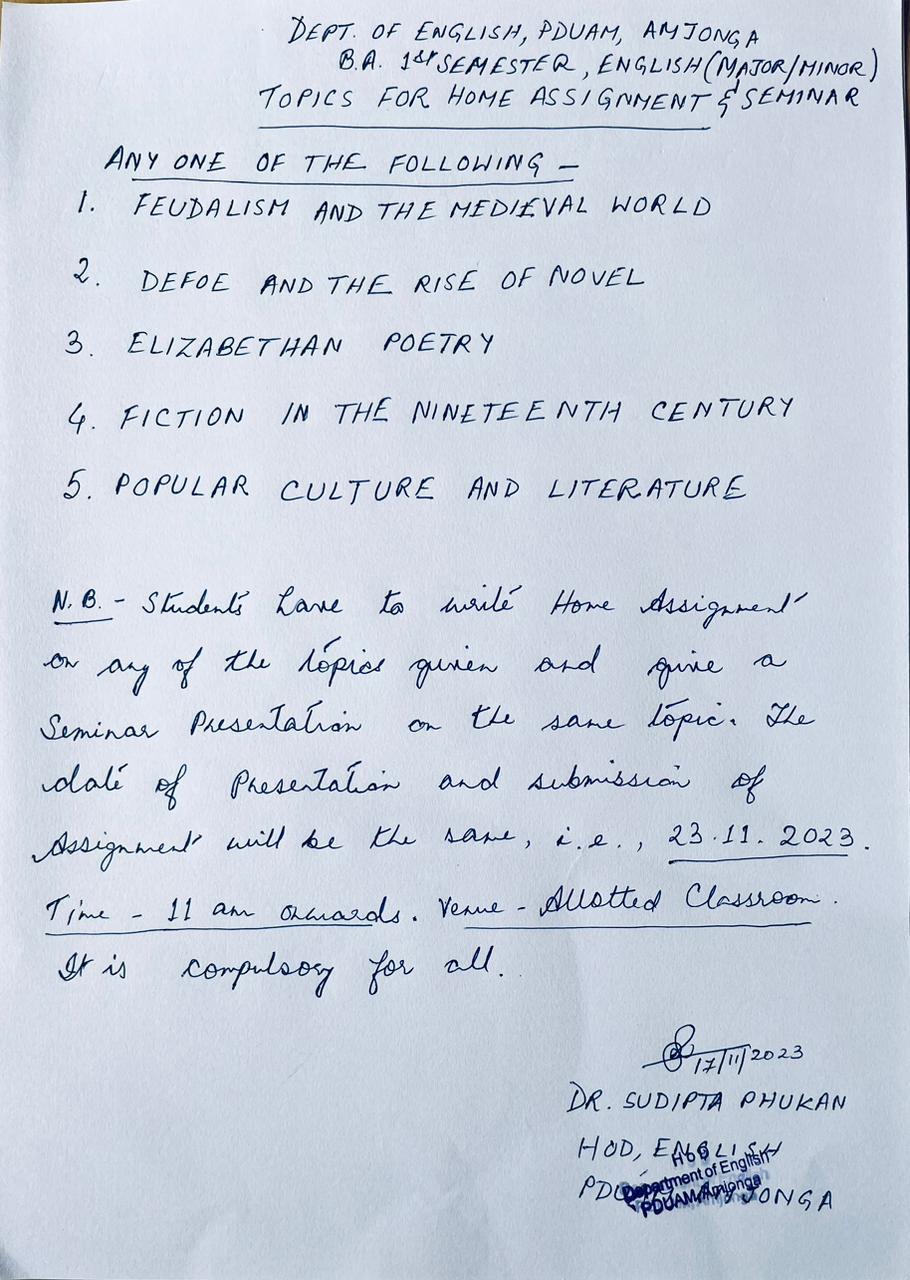 DEPT. OF ENGLISH, PDUAM, AMJONGA
B.A. 1st SEMESTER, ENGLISH (MAJOR/MINOR)
TOPICS FOR HOME ASSIGNMENT & SEMINAR
ANY ONE OF THE FOLLOWING -
1. FEUDALISM AND THE MEDIEVAL WORLD
2. DEFOE AND THE RISE OF NOVEL
3. ELIZABETHAN POETRY
4. FICTION IN THE NINETEENTH CENTURY
5. POPULAR CULTURE AND LITERATURE
N.B. - Students have to write Home Assignment
on any of the topics given and give a
Seminar Presentation on the same topic. The
date of Presentation and submission of
Assignment will be the same, i.e., 23.11.2023.
Time - 11 am onwards. Venue - Allotted Classroom.
It is compulsory for all.
17/11/2023
DR. SUDIPTA PHUKAN
HOD, ENGLISH
PDUAM, AMJONGA
HOD
Department of English
PDUAM, Amjonga